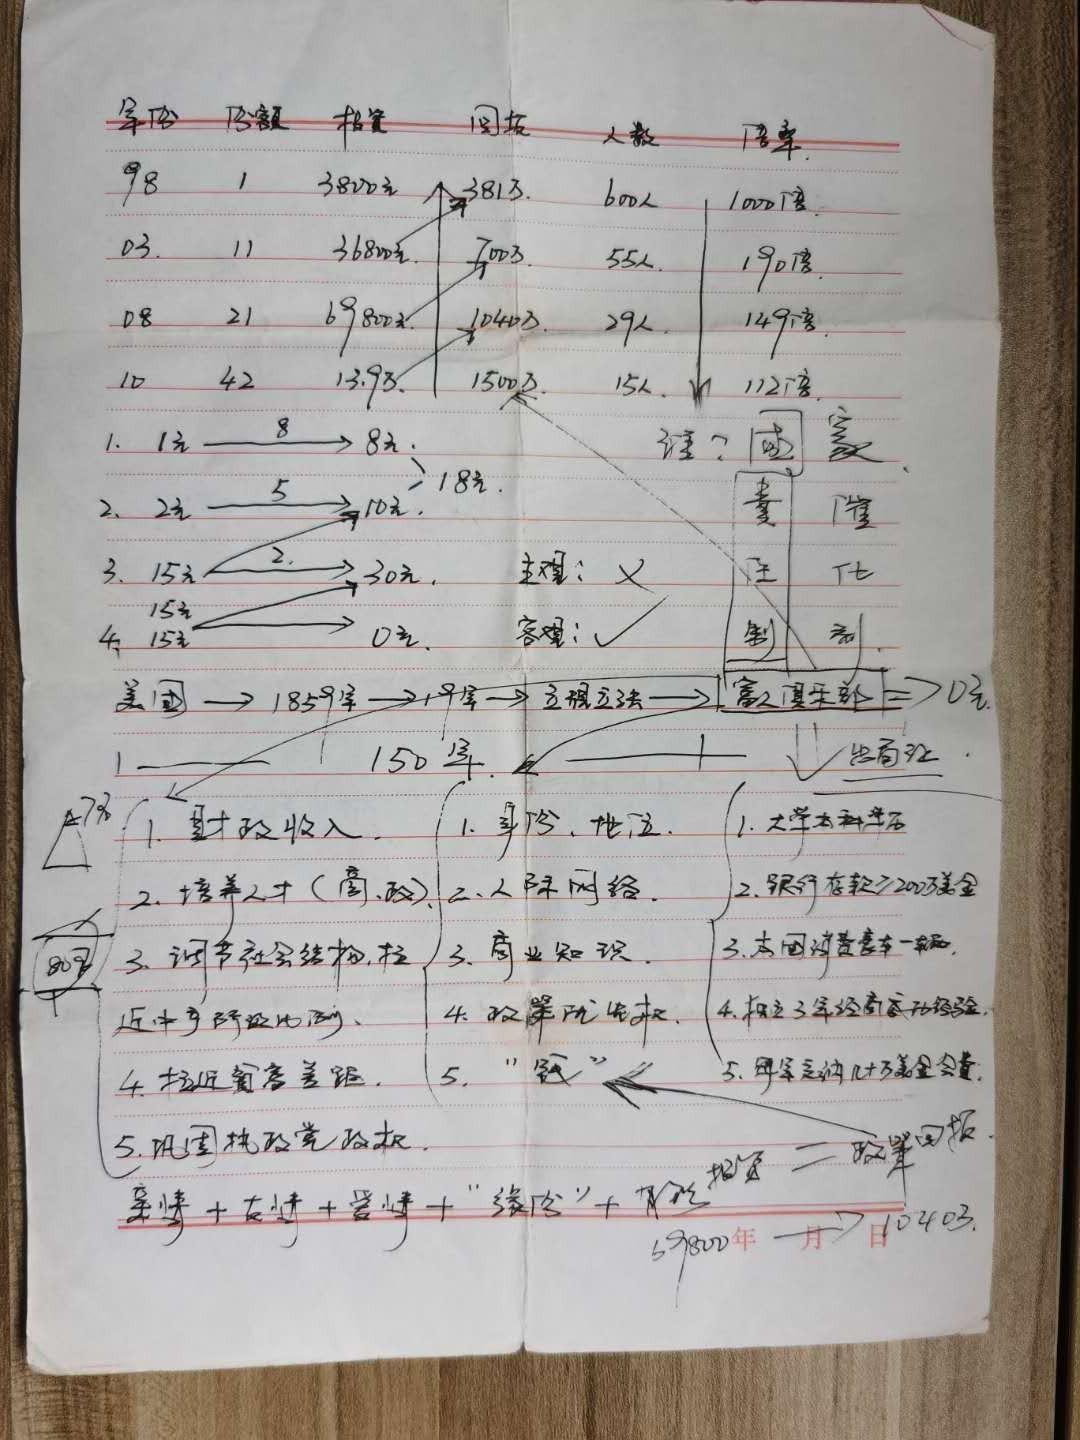 年份 份额 投资 回报 人数 倍率
98 1 3800元 381万 600人 1000倍
03 11 36800元 700万 55人 190倍
08 21 69800元 1040万 29人 149倍
10 42 13.9万 1500万 15人 112倍
1. 1元 8 8元 谁? 国家
18元
2. 2元 5 10元 责 催
3. 15元 2. 30元 主观: × 任 化
15元
4. 15元 0元 客观: ✓ 制 剂
美国 → 1859年 → 9年 → 立规立法 → 富人俱乐部 => 0元
150年 出局班
1. 财政收入 1. 身份、地位 1. 大学本科学历
2. 培养人才(商、政) 2. 人际网络 2. 银行存款≥200万美金
80%
3. 调节社会结构, 拉 3. 商业知识 3. 本国消费豪车一辆
近中专阶级比例、 4. 政策优先权 4. 独立3年经商经验
4. 拉近贫富差距 5. “钱” 5. 每年交纳几十万美金会费
5. 巩固执政党政权
亲情+友情+爱情+“缘份”+ 投资 = 政策回报
69800 年 月 日 1040万